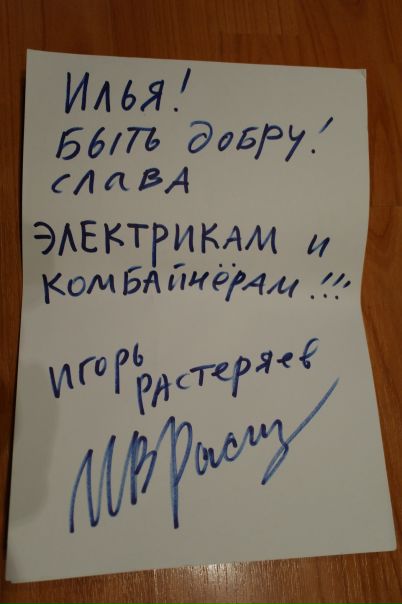 Илья!
Быть добру!
Слава
Электрикам и
Комбайнёрам!!!
Игорь
Растеряев